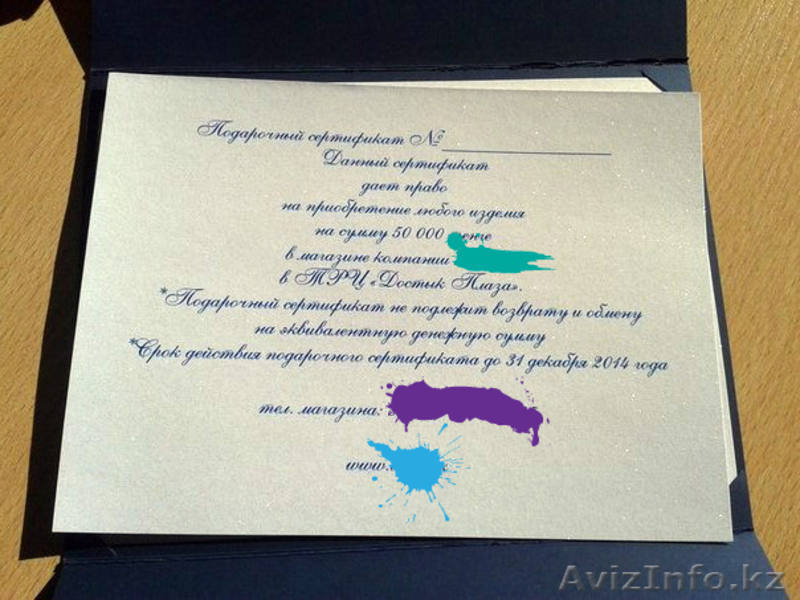 Подарочный сертификат №
Данный сертификат
дает право
на приобретение любого изделия
на сумму 50 000
в магазине компании
в ТРЦ «Достык Плаза».
*Подарочный сертификат не подлежит возврату и обмену
на эквивалентную денежную сумму
*Срок действия подарочного сертификата до 31 декабря 2014 года
тел. магазина:
www.
AvizInfo.kz